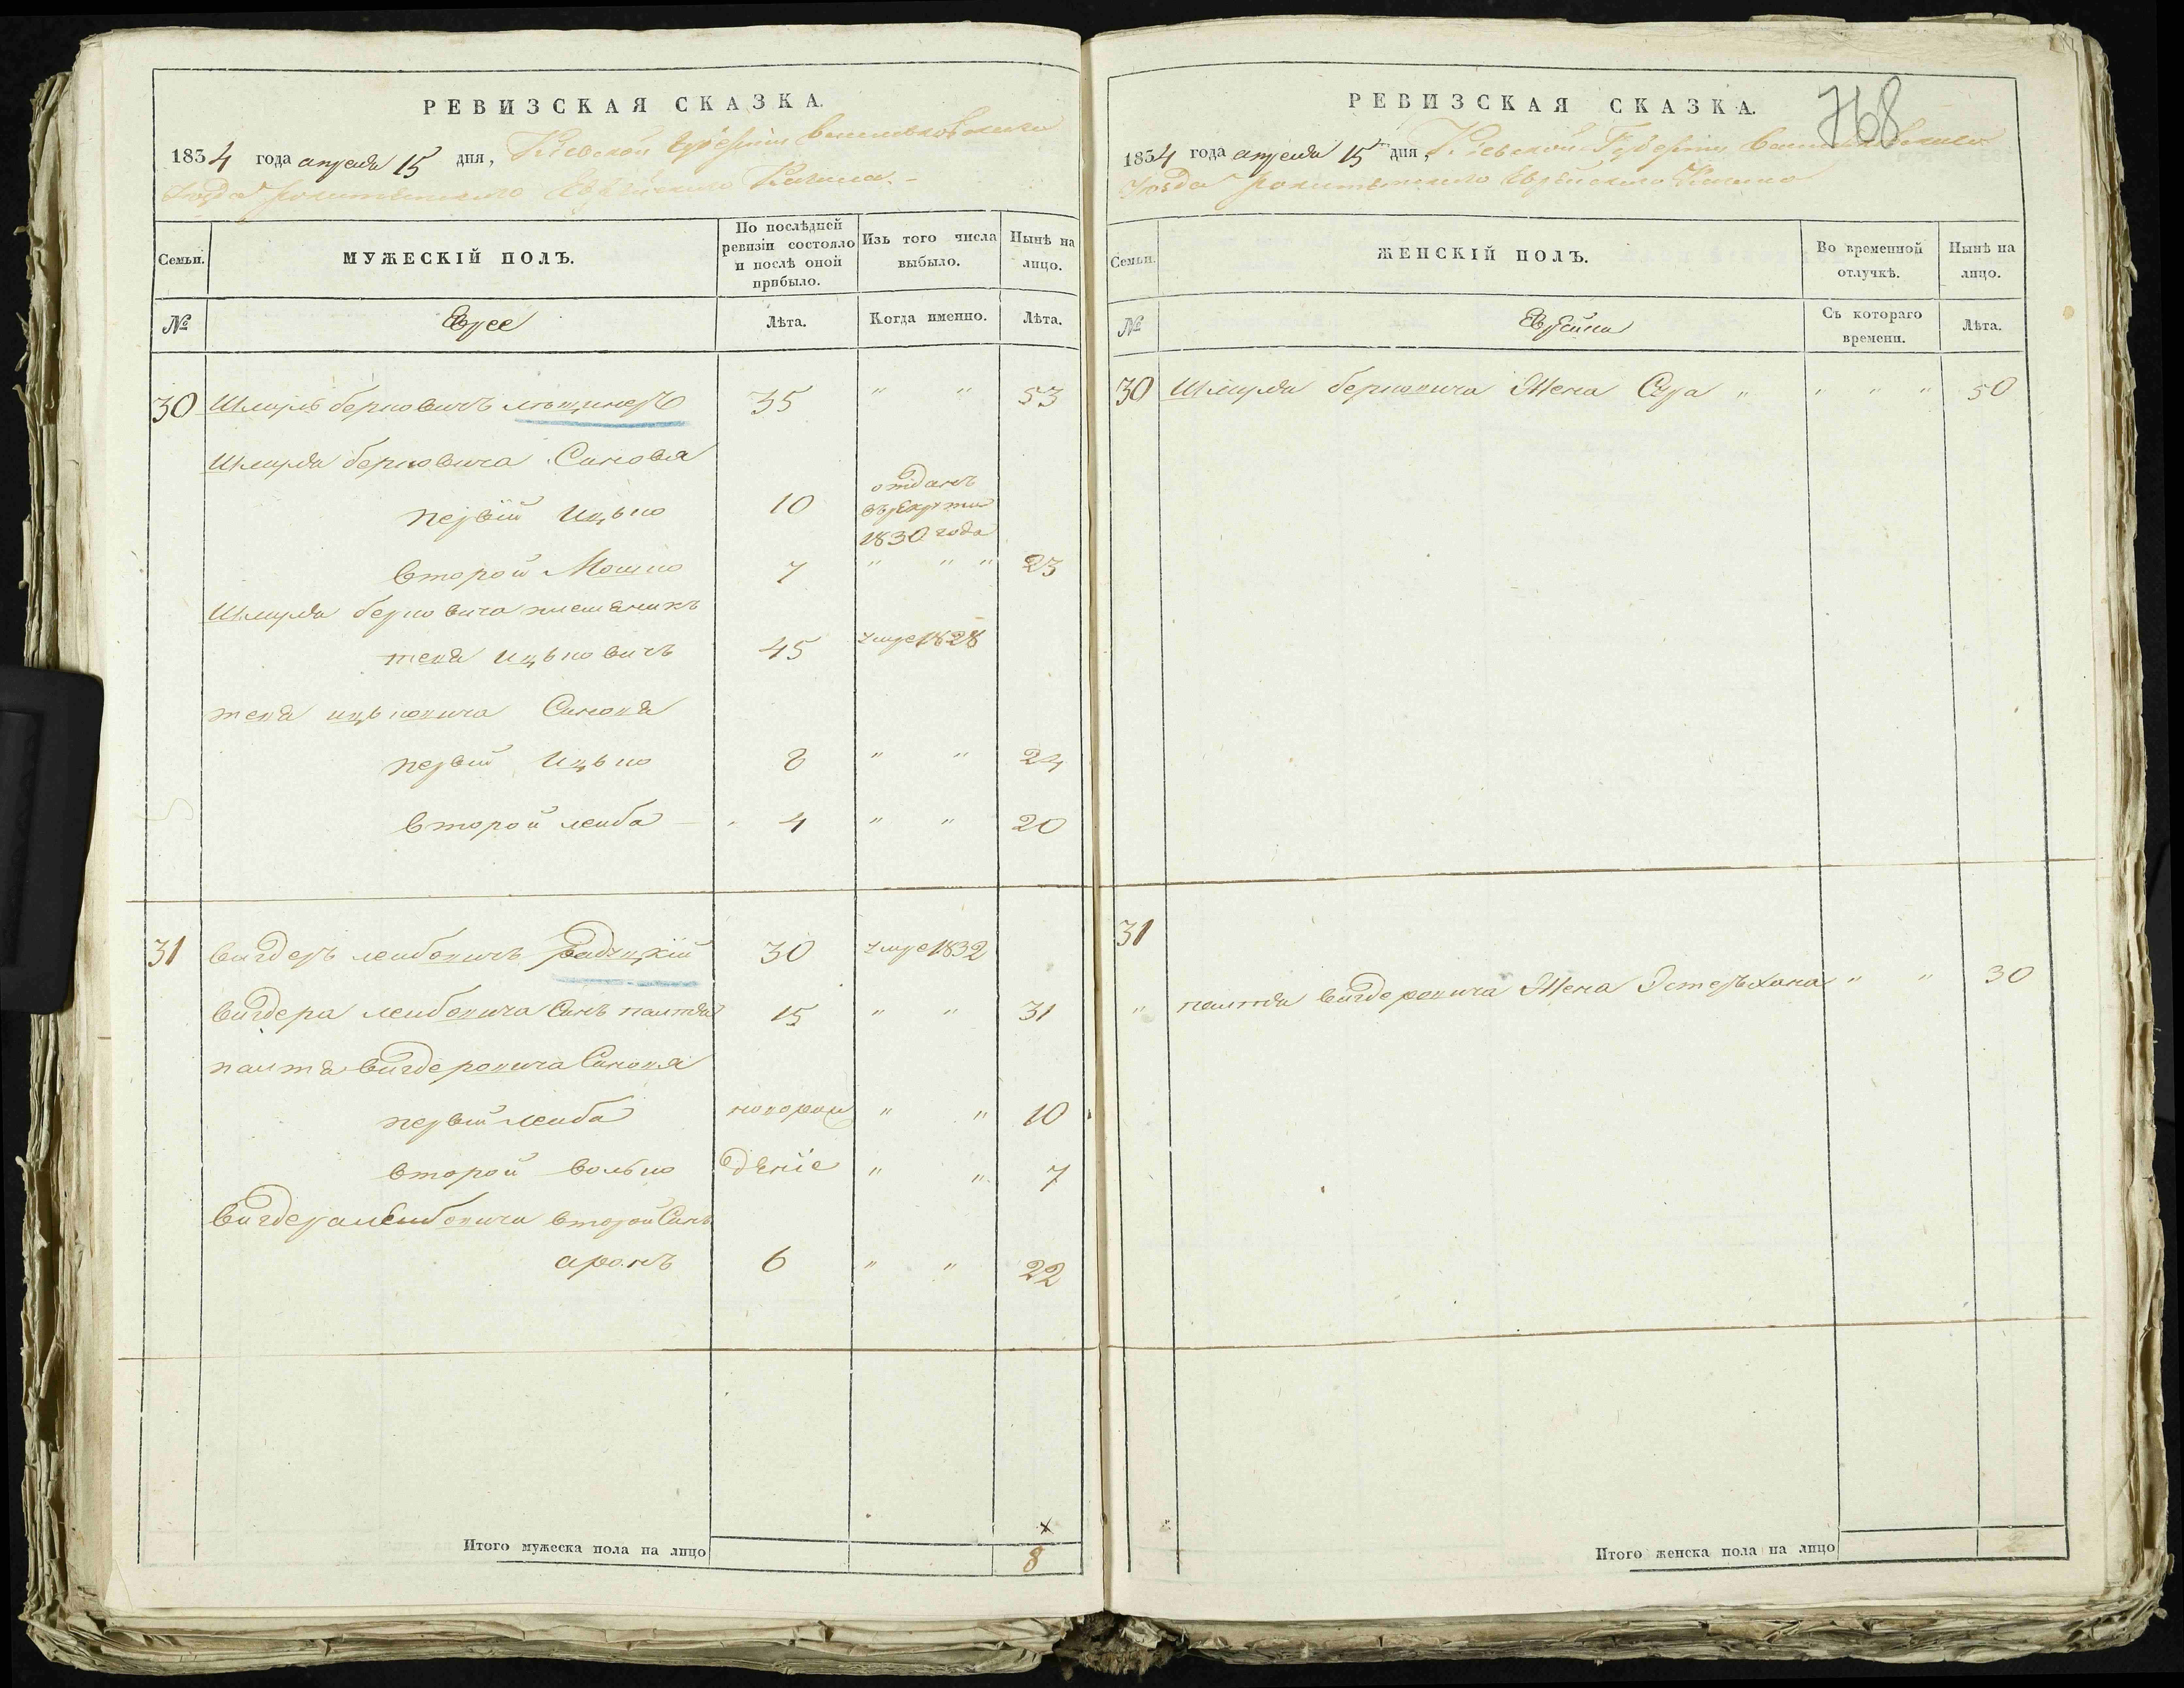 РЕВИЗСКАЯ СКАЗКА.
1834 года апреля 15 дня, Кіевской Губерніи Васильковскаго
Уезда рокитянскаго Еврейскаго Кагала.
Семьи.
МУЖЕСКІЙ ПОЛЪ.
По послѣдней ревизіи состояло и послѣ оной прибыло.
Изъ того числа выбыло.
Нынѣ на лицо.
№
Евреи
Лѣта.
Когда именно.
Лѣта.
30 Шмуль берковичъ 35 " " 53
Шмуля берковича Синовя
первій Ицько 10 отданъ въ рекрути 1830 года
второй Мошко 7 " " " 23
Шмуля берковича племеникъ
ицьковичъ 45 умре 1828
ицьковича Синовя
первій Ицько 8 " " 24
второй лейба 4 " " 20
31 вигдеръ лейбовичъ 30 умре 1832
вигдера лейбовича Синъ 15 " " 31
вигдеровича Синовя
первій лейба новорож " " 10
второй волько деніе " " 7
вигдера лейбовича второй Синъ
аронъ 6 " " 22
Итого мужеска пола на лицо 8
РЕВИЗСКАЯ СКАЗКА.
768
1834 года апреля 15 дня, Кіевской Губерніи Васильковскаго
Уезда рокитянскаго Еврейскаго Кагала
Семьи.
ЖЕНСКІЙ ПОЛЪ.
Во временной отлучкѣ.
Нынѣ на лицо.
№
Съ котораго времени.
Лѣта.
30 Шмуля берковича Жена Сура " " " " 50
31
" вигдеровича Жена Эстеръ хана " " 30
Итого женска пола на лицо